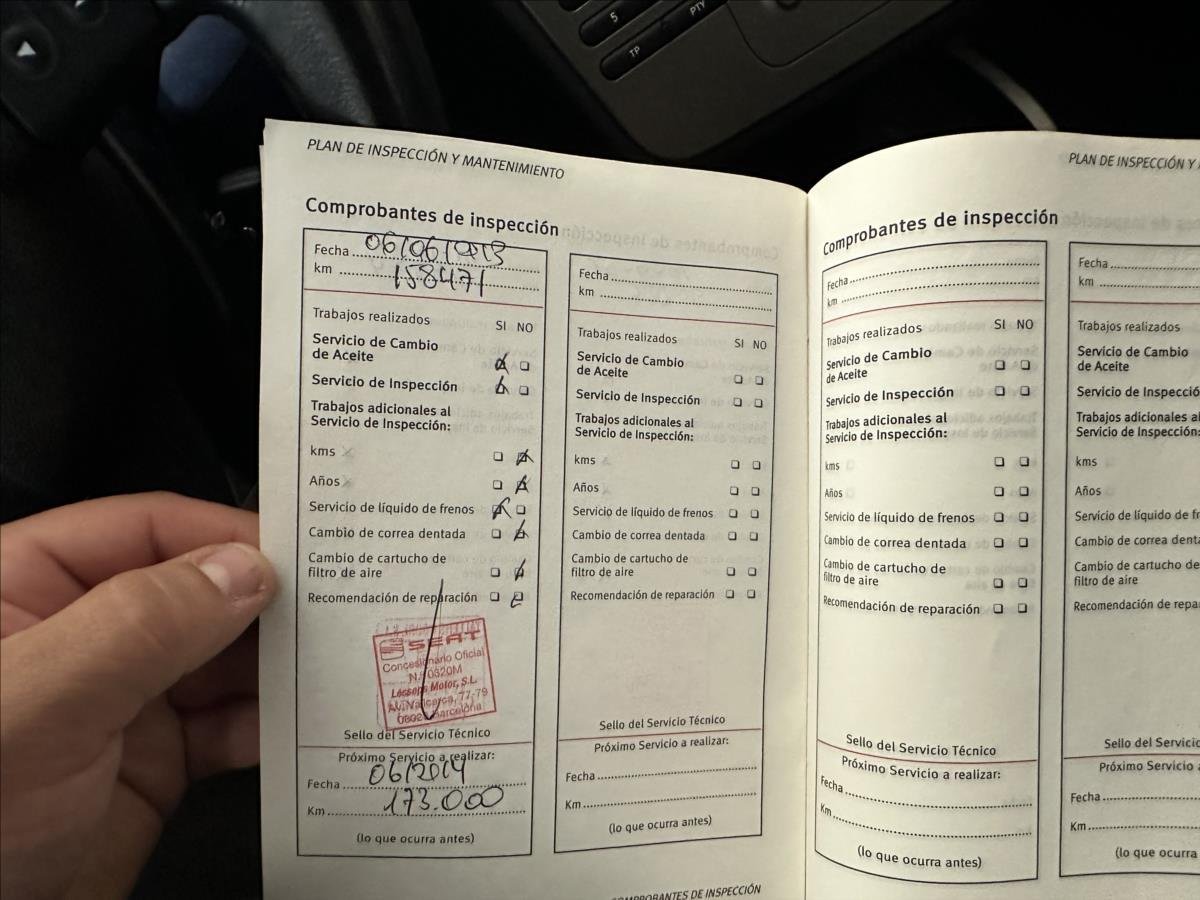 5
TP
PTY
PLAN DE INSPECCIÓN Y MANTENIMIENTO
Comprobantes de inspección
Fecha 06/06/2013
km 158471
Trabajos realizados SI NO
Servicio de Cambio
de Aceite
Servicio de Inspección
Trabajos adicionales al
Servicio de Inspección:
kms
Años
Servicio de líquido de frenos
Cambio de correa dentada
Cambio de cartucho de
filtro de aire
Recomendación de reparación
SEAT
Concesionario Oficial
N.º 0320M
Motor, S.L.
77-79
Barcelona
Sello del Servicio Técnico
Próximo Servicio a realizar:
Fecha 06/2014
Km 173.000
(lo que ocurra antes)
Fecha
km
Trabajos realizados SI NO
Servicio de Cambio
de Aceite
Servicio de Inspección
Trabajos adicionales al
Servicio de Inspección:
kms
Años
Servicio de líquido de frenos
Cambio de correa dentada
Cambio de cartucho de
filtro de aire
Recomendación de reparación
Sello del Servicio Técnico
Próximo Servicio a realizar:
Fecha
Km
(lo que ocurra antes)
COMPROBANTES DE INSPECCIÓN
PLAN DE INSPECCIÓN Y
Comprobantes de inspección
Fecha
km
Trabajos realizados SI NO
Servicio de Cambio
de Aceite
Servicio de Inspección
Trabajos adicionales al
Servicio de Inspección:
kms
Años
Servicio de líquido de frenos
Cambio de correa dentada
Cambio de cartucho de
filtro de aire
Recomendación de reparación
Sello del Servicio Técnico
Próximo Servicio a realizar:
Fecha
Km
(lo que ocurra antes)
Fecha
km
Trabajos realizados
Servicio de Cambio
de Aceite
Servicio de Inspección
Trabajos adicionales al
Servicio de Inspección:
kms
Años
Servicio de líquido de fr
Cambio de correa denta
Cambio de cartucho de
filtro de aire
Recomendación de repa
Sello del Servicio
Próximo Servicio a
Fecha
Km
(lo que ocurra